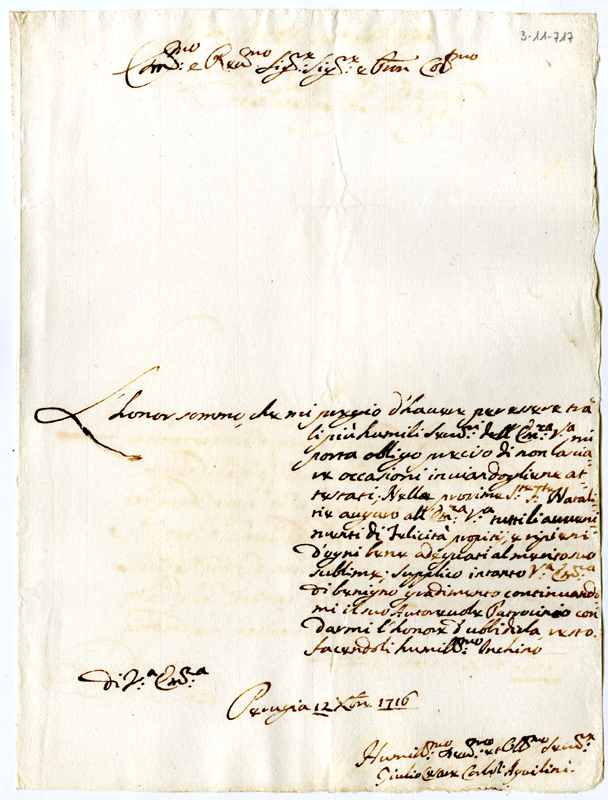 3-11-717
Em.mo e Reu.mo Sig.r Sig.r e Pron Col.mo
L'honor sommo, che mi pregio d'hauere per essere trà
li più humili Seru.ri dell'Em.za V.a mi
porta obligo preciso di non lascia
re occasioni inuiandogliene at-
testati; Nelle prossime S.te F.te Natali
tie auguro all'Em.za V.a tutti li aueni
menti di Felicità propitij, e ripieni
d'ogni bene adequati al merito suo
sublime; supplico intanto V.a Em.za
di benigno gradimento continuando
mi il suo Autoreuole Patrocinio con
darmi l'honore d'ubbidirla, resto
facendoli humil.mo Inchino
di V.a Em.za
Perugia 12 Xbre 1716
Humil.mo Deu.mo et Obl.mo Seru.re
Giulio Cesare Aquilini.